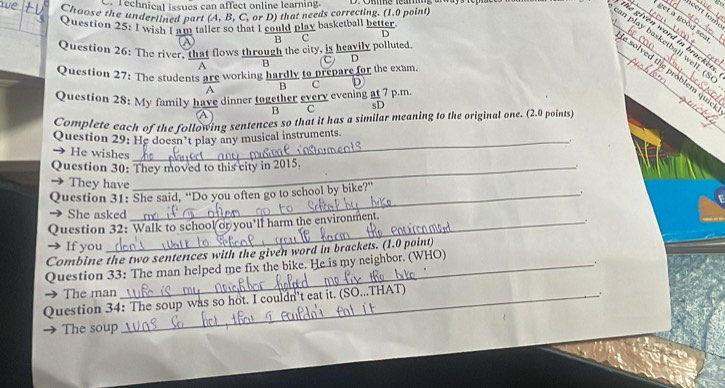 C. Technical issues can affect online learning.
Choose the underlined part (A, B, C, or D) that needs correcting. (1.0 point)
Question 25: I wish I am taller so that I could play basketball better.
A B C D
Question 26: The river, that flows through the city, is heavily polluted.
A B C D
Question 27: The students are working hardly to prepare for the exam.
A B C D
Question 28: My family have dinner together every evening at 7 p.m.
A B C sD
Complete each of the following sentences so that it has a similar meaning to the original one. (2.0 points)
Question 29: He doesn't play any musical instruments.
→ He wishes he played any musical instruments.
Question 30: They moved to this city in 2015.
→ They have
Question 31: She said, “Do you often go to school by bike?”
→ She asked me if I often go to school by bike.
Question 32: Walk to school or you'll harm the environment.
→ If you don't walk to school, you'll harm the environment.
Combine the two sentences with the given word in brackets. (1.0 point)
Question 33: The man helped me fix the bike. He is my neighbor. (WHO)
→ The man who is my neighbor helped me fix the bike.
Question 34: The soup was so hot. I couldn't eat it. (SO...THAT)
→ The soup was so hot, that I couldn't eat it.
the given word in brackets
can play basketball well. (SO
He solved the problem quickly
get a good seat.